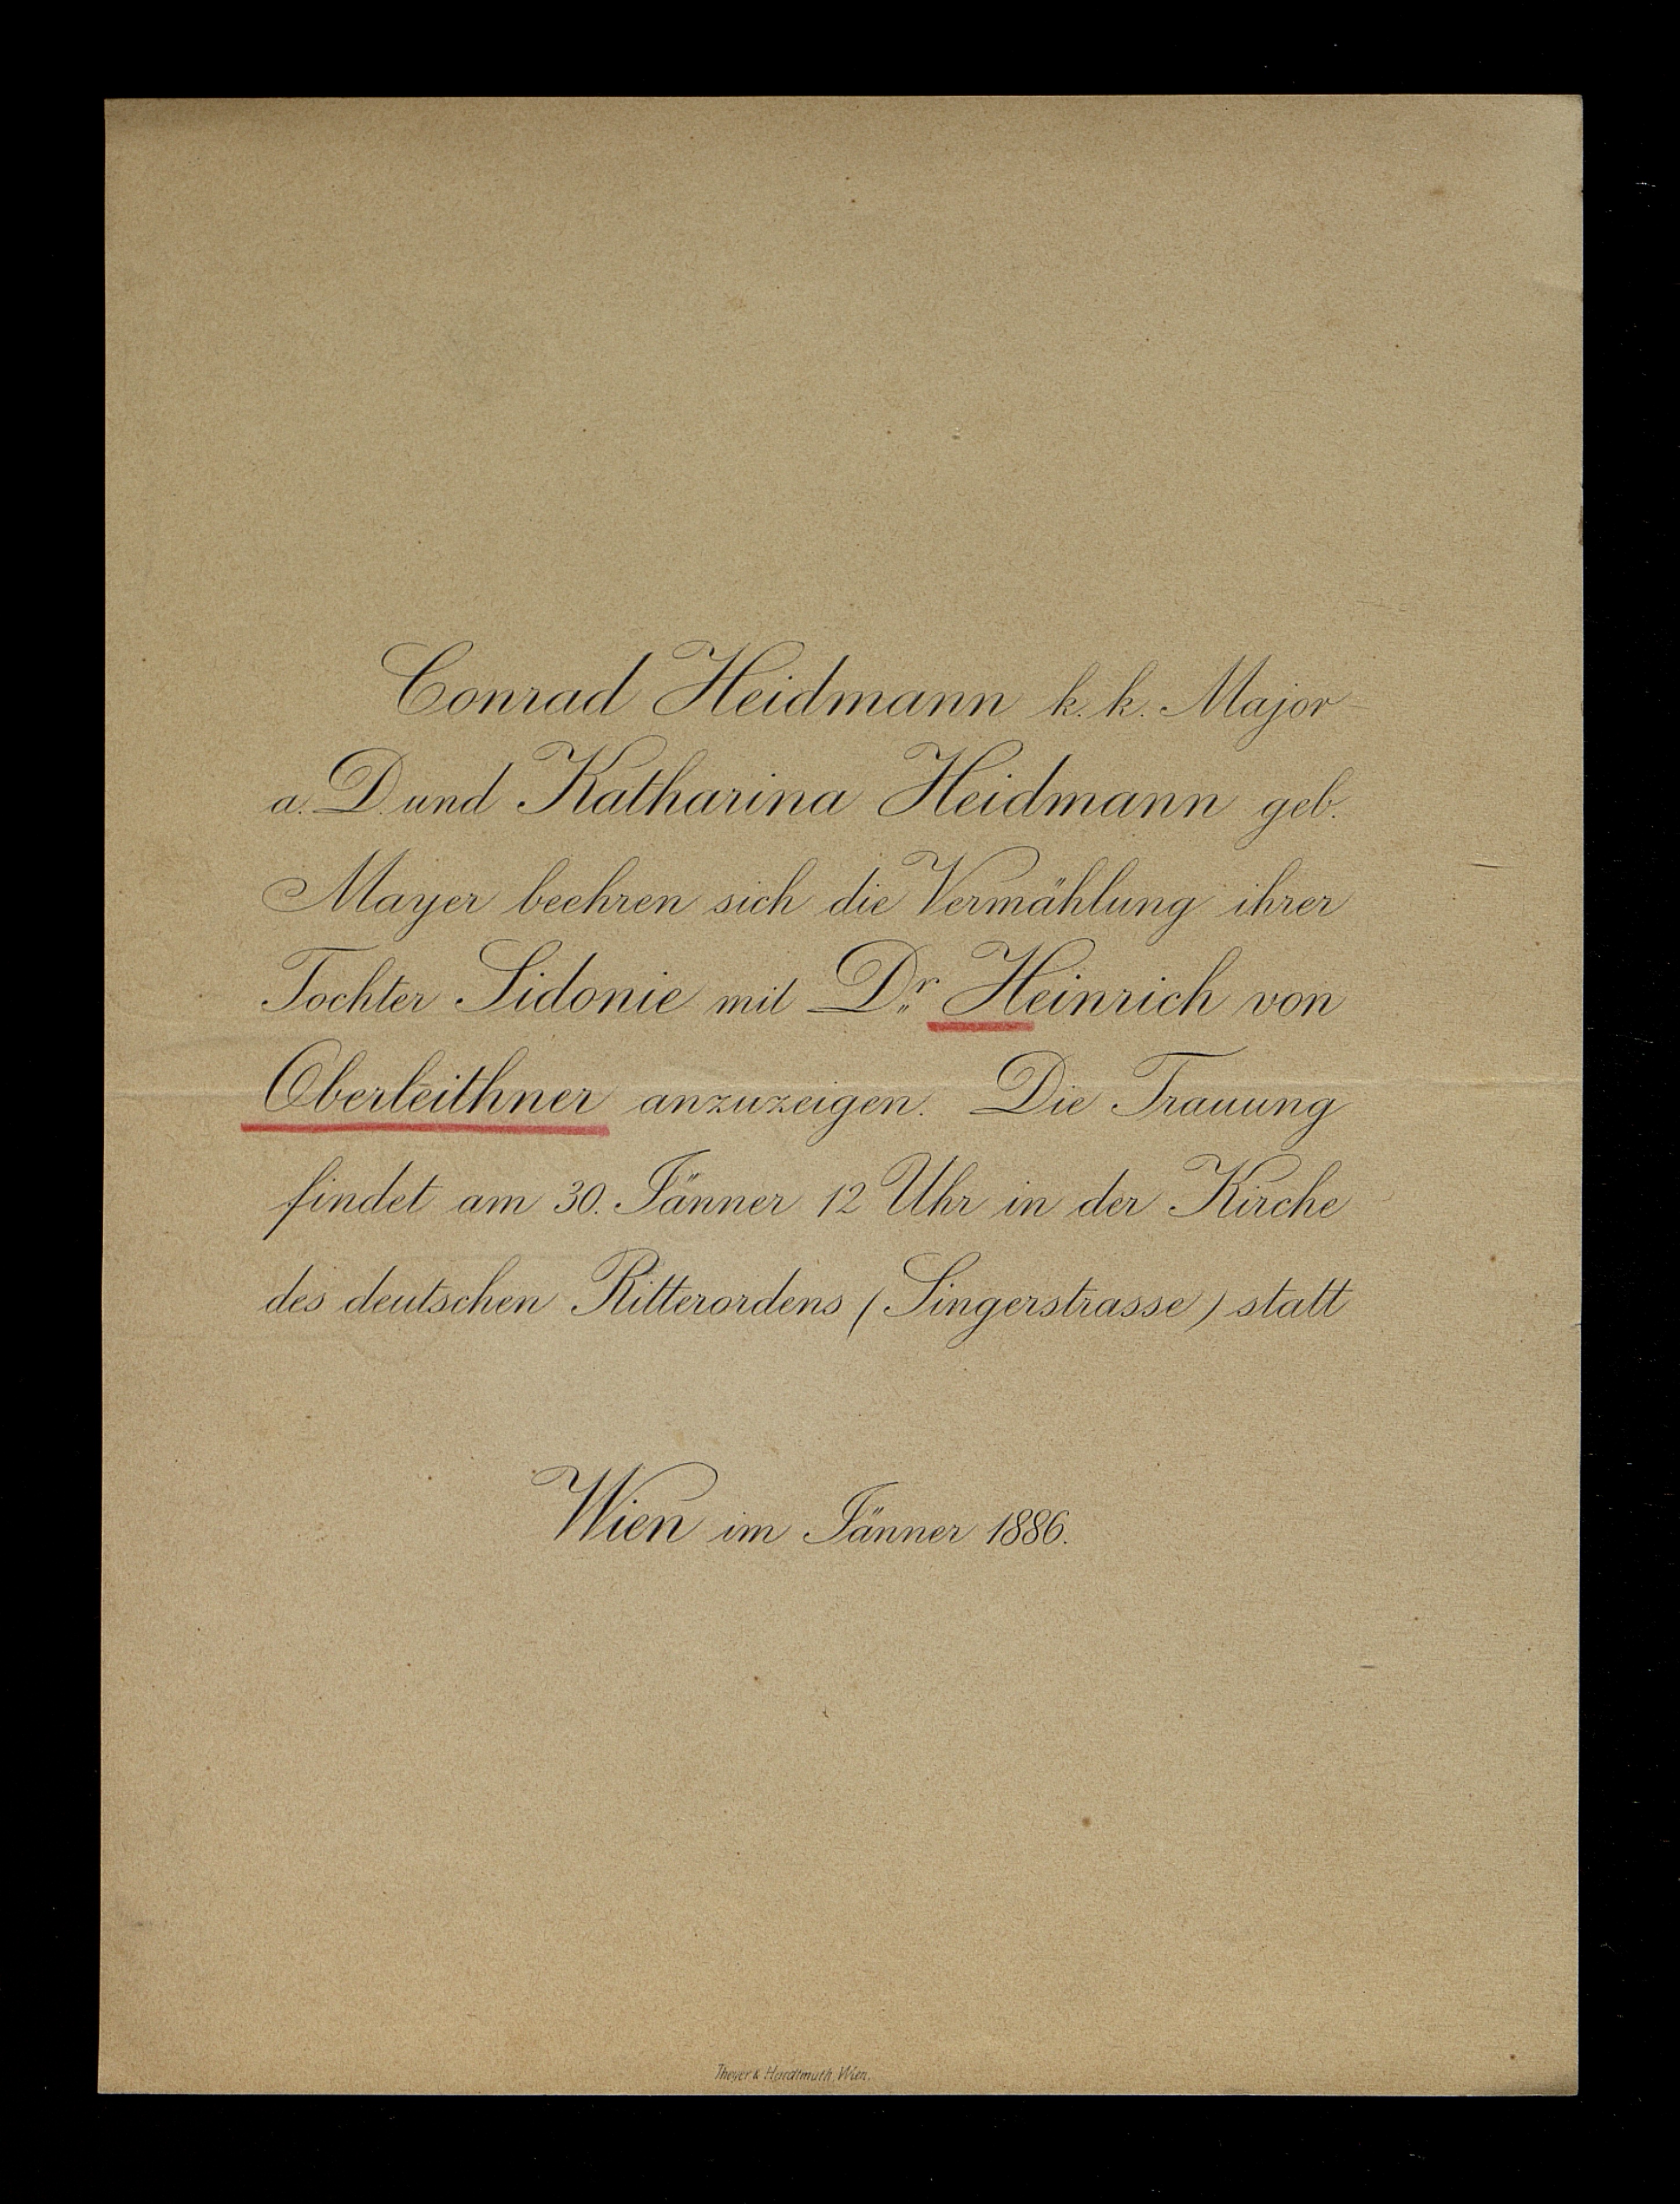 Conrad Heidmann k. k. Major
a. D. und Katharina Heidmann geb.
Mayer beehren sich die Vermählung ihrer
Tochter Sidonie mit Dr. Heinrich von
Oberleithner anzuzeigen. Die Trauung
findet am 30. Jänner 12 Uhr in der Kirche
des deutschen Ritterordens (Singerstrasse) statt
Wien im Jänner 1886.
Theyer & Hardtmuth, Wien.